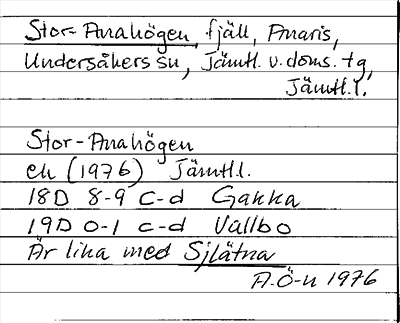 Stor-Anahögen, fjäll, Anaris,
Undersåkers sn, Jämtl. v. doms. tg,
Jämtl. l.
Stor-Anahögen
ek (1976) Jämtl.
18D 8-9 c-d Gakka
19D 0-1 c-d Vallbo
Är lika med Sjlätna
A.Ö-n 1976